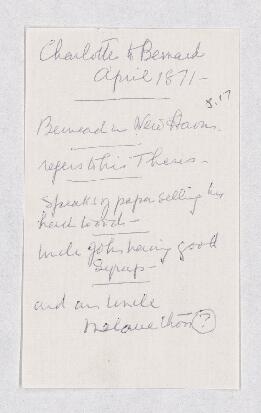 Charlotte to Bernard
April 1871-
8.17
Bernard in New Haven.
refers to his Thesis-
Speaks of papa selling his
hard wood-
Uncle John having good
Syrup-
and an Uncle
Melancthon ?